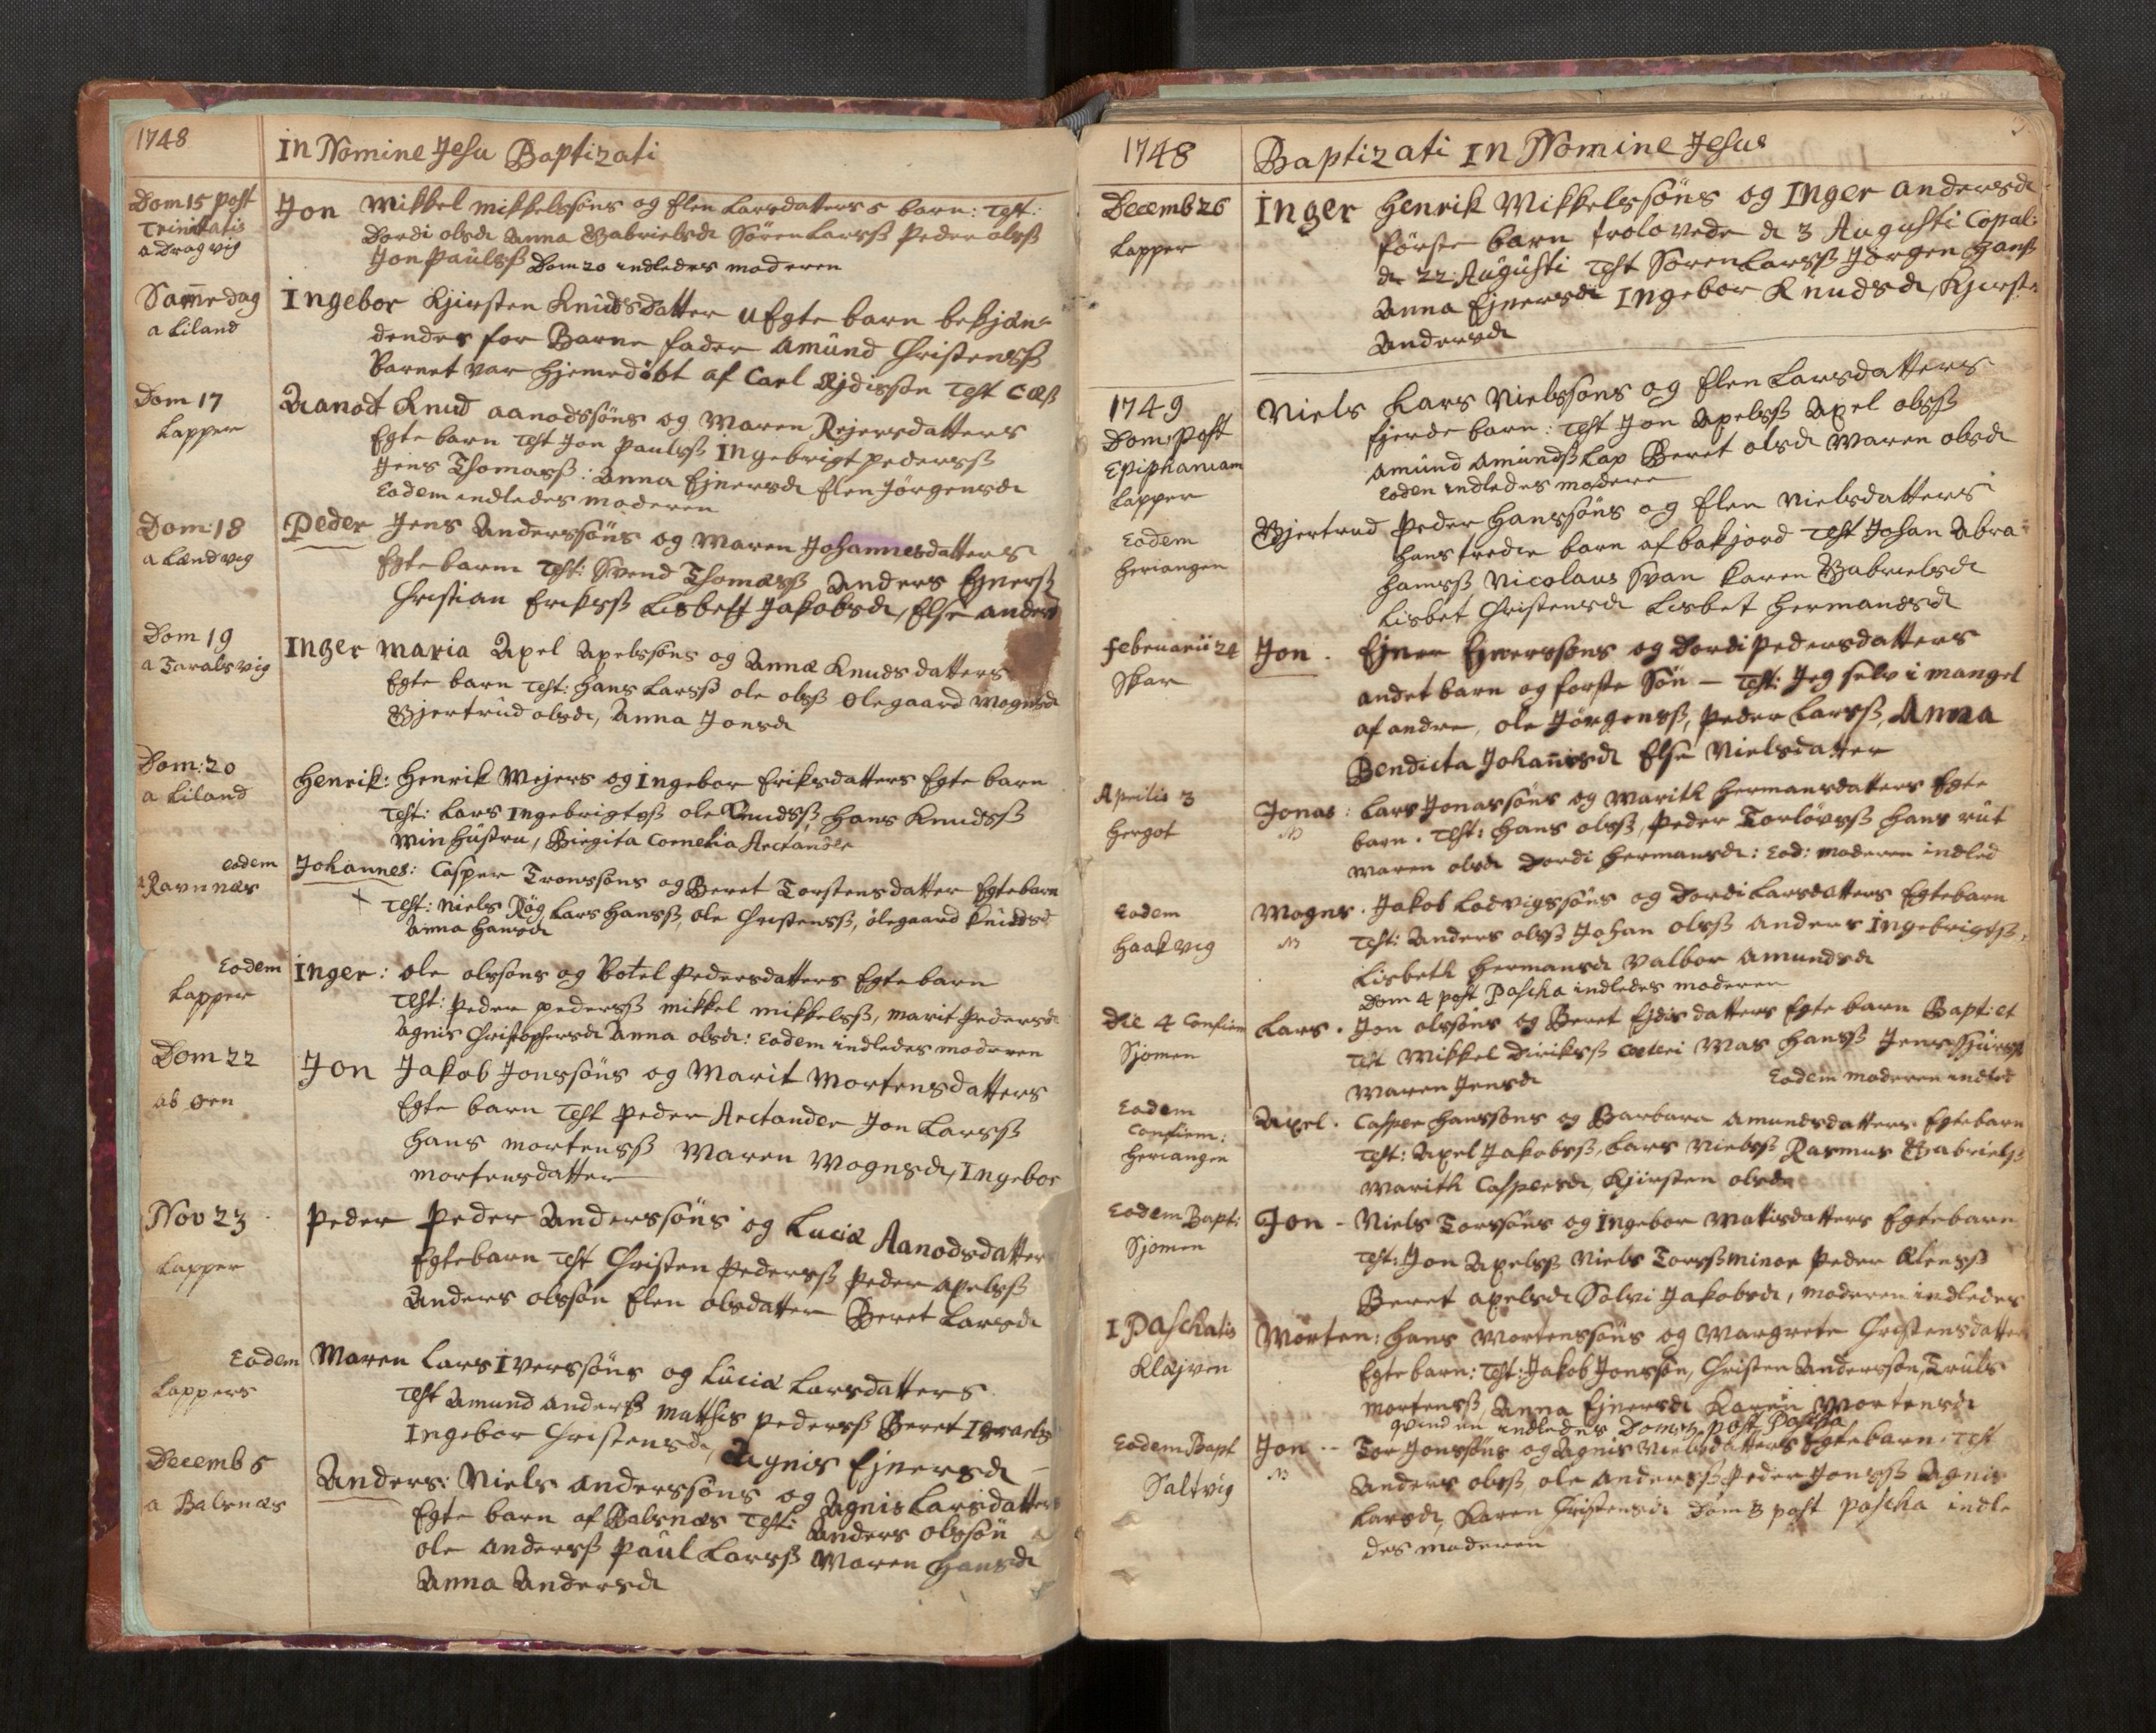 1748
In Nomine Jesu Baptizati
Dom 15 post
Trinitatis
a Dragvig
Jon Mikkel Mikkelssöns og Elen Larsdatters 5 barn: Test:
Dordi olsd Anna Gabrielsd Sören Larsß Peder olsß
Jon Paulsß Dom 20 indledes moderen
Samedag
a Liland
Ingebor Kjirsten Knudsdatter uEgte barn bekjæn-
dendes for Barne fader Amund Christensß
Barnet var hjemedöbt af Carl Ejdissön Test
Dom 17
Lapper
Aanod Knud Aanodssöns og Maren Rejersdatters
Egte barn Test Jon Paulsß Ingebrigt Pedersß
Jens Thomasß: Anna Ejnersd Elen Jörgensd
Eodem indledes moderen
Dom: 18
a Landvig
Peder Jens Anderssöns og Maren Johannesdatters
Egte barn Test: Svend Thomæsß Anders Ejnersß
Christian Eriksß Lisbeth Jakobsd, Else Anders
Dom 19
a Taralsvig
Inger Maria Axel Axelssöns og Anna Knudsdatters
Egte barn Test: Hans Larsß ole olsß Olegaard Mognsd
Gjertrud olsd, Anna Jonsd
Dom: 20
a Liland
Henrik: Henrik Mejers og Ingebor Eriksdatters Egte barn
Test: Lars Ingebrigtsß ole Knudsß Hans Knudsß
Min hustru, Birgita Cornelia Arctander
eodem
a Ravnnæs
Johannes: Casper Tronssöns og Beret Torstensdatter Egtebarn
Test: Niels Rög Lars Hansß, ole Christensß, olegaard Knudsd
Anna Hansd
Eodem
Lapper
Inger: ole olssöns og Botel Pedersdatters Egte barn
Test: Peder Pedersß Mikkel Mikkelsß, Marit Pedersd
Agnis Christophersd Anna olsd: Eodem indledes moderen
Dom 22
ab öen
Jon Jakob Jonssöns og Marit Mortensdatters
Egte barn Test Peder Arctander Jon Larsß
Hans Mortensß Maren Mognsd, Ingebor
Mortensdatter
Nov 23
Lapper
Peder Peder Anderssöns og Lucia Aanodsdatter
Egtebarn Test Christen Pedersß Peder Apelsß
Anders olssön Elen olsdatter Beret Larsd
Eodem
Lappers
Maren Lars Iverssöns og Lucia Larsdatters
Test Amund Andersß Matthis Pedersß Beret Israels
Ingebor Christensd, Agnis Ejnersd
Decemb 5
a Balsnæs
Anders: Niels Anderssöns og Agnis Larsdatters
Egte barn af Balsnæs Test: Anders olssön
ole Andersß Paul Larsß Maren Hansd
Anna Andersd
1748
Baptizati In Nomine Jesus
Decemb 26
Lapper
Inger Henrik Mikkelssöns og Inger Andersd
förste barn trolovede d 3 Augusti Copul:
d 22 Augusti Test Sören Larsß Jörgen Hansß
Anna Ejnersd Ingebor Knudsd, Kjirst
Andersd
1749
Dom post
Epiphaniam
Lapper
Niels Lars Nielssöns og Elen Larsdatters
fjerde barn: Test Jon Apelsß Axel olsß
Amund Amundsß Lap Beret olsd Maren olsd
Eodem indledes modere
Eodem
Heriangen
Gjertrud Peder Hanssöns og Elen Nielsdatters
hans tredie barn af bakjord Test Johan Abra-
hamsß Nicolaus Svan Karen Gabrielsd
Lisbet Christensd Lisbet Hermandsd
Februarii 24
Skar
Jon. Ejner Ejnerssöns og Dordi Pedersdatters
andet barn og förste Sön - Test: Jeg selv i mangel
af andre, ole Jörgensß, Peder Larsß, Anna
Bendicta Johannisd Else Nielsdatter
Aprilis 3
Hergot
Jonas: Lars Jonassöns og Marith Hermansdatters Egte
barn. Test: Hans olsß, Peder Torlöwsß Hans rut
Maren olsd Dordi Hermansd: Eod: moderen indled
Eodem
Haakvig
Mogns. Jakob Lodvigssöns og Dordi Larsdatters Egtebarn
Test: Anders olsß Johan olsß Anders Ingebrigtsß,
Lisbeth Hermansd Valbor Amundsd
Dom 4 post Pascha indledes moderen
Die 4 Confirm
Sjomen
Lars. Jon olssöns og Beret Ejdisdatters Egte barn Bapt: et
Test Mikkel Diriksß cæteri Mas Hansß Jens Sjursß
Maren Jensd Eodem moderen indled
Eodem
Confirm:
Heriangen
Axel. Casper Hanssöns og Barbara Amundsdatters Egtebarn
Test: Axel Jakobsß, Lars Nielsß Rasmus Gabrielsß
Marith Caspersd, Kjirsten olsd
Eodem Bapt:
Sjomen
Jon - Niels Torssöns og Ingebor Matisdatters Egtebarn
Test: Jon Axelsß Niels Torsß minor Peder Klensß
Beret Axelsd Solvi Jakobsd, moderen indledes
I Paschatis
Klæjven
Morten: Hans Mortenssöns og Margrete Christensdatter
Egte barn: Test: Jakob Jonssön, Christen Anderssön, Truls
Mortensß Anna Ejnersd Karen Mortensd
indledes Dom post Pascha
Eodem Bapt
Saltvig
Jon -- Tor Jonssöns og Agnis Nielsdatters Egtebarn. Test
Anders olsß, ole Andersß Peder Jonsß Agnis
Larsd, Karen Christensd Dom 3 post pascha indle
des moderen